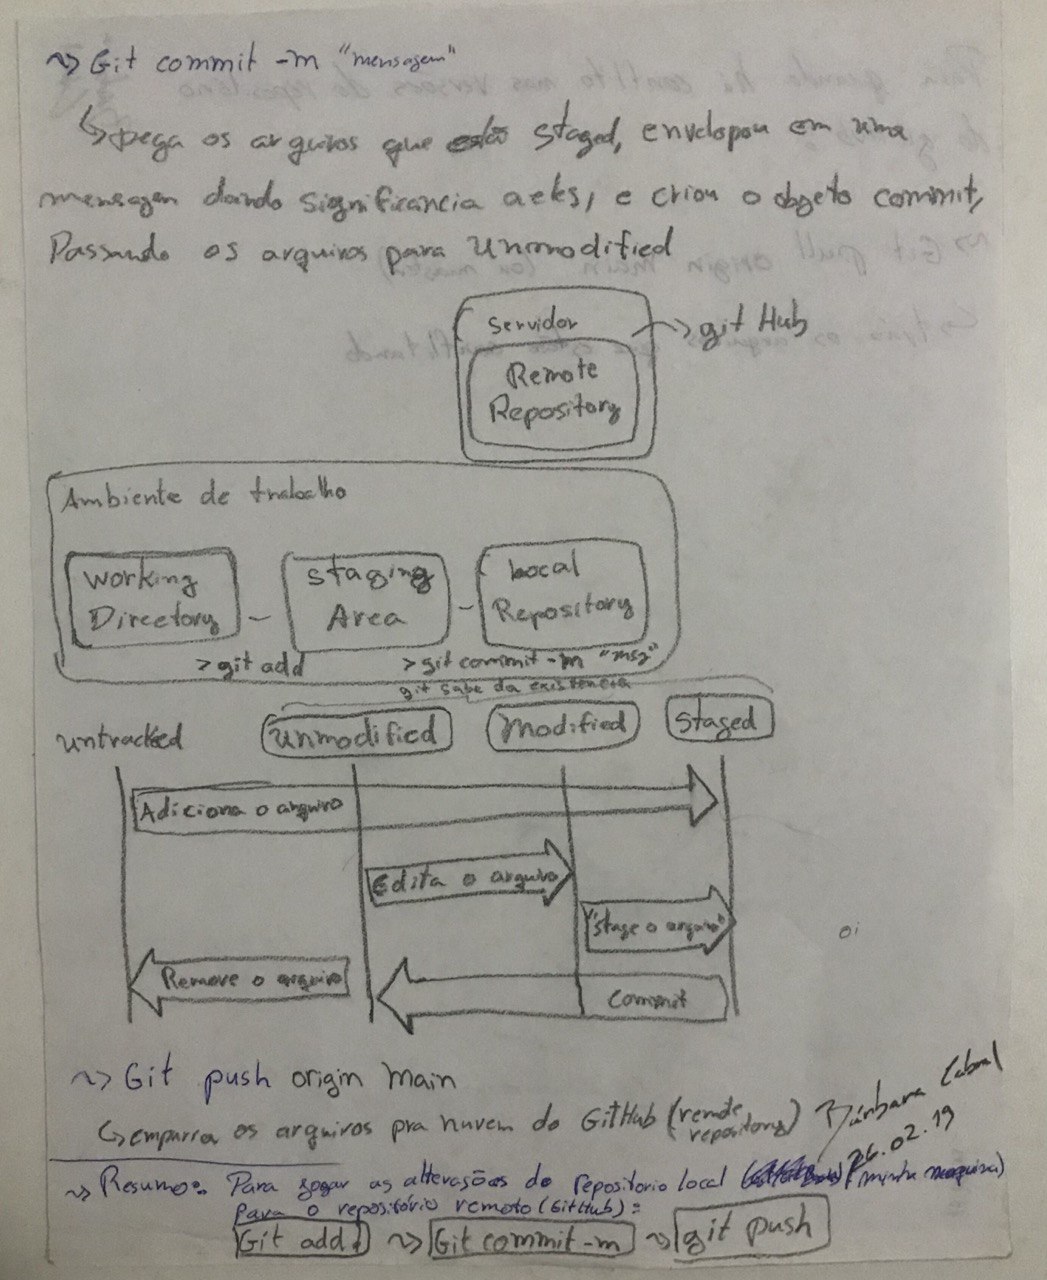 ~> Git commit -m "mensagem"
↳ pega os arquivos que estão staged, envelopou em uma
mensagem dando significancia a eles, e criou o objeto commit,
Passando os arquivos para Unmodified
Servidor → git Hub
Remote
Repository
Ambiente de trabalho
Working
Directory
Staging
Area
Local
Repository
>git add
>git commit -m "msg"
git sabe da existência
untracked
Unmodified
Modified
Staged
Adiciona o arquivo
Edita o arquivo
"Stage o arquivo"
oi
Remove o arquivo
Commit
~> Git push origin main
↳ empurra os arquivos pra nuvem do GitHub (remote
repository)
Bárbara Cabral
26.02.19
~> Resumo: Para jogar as alterações do repositorio local (minha maquina)
para o repositório remoto (GitHub):
Git add . ~> Git commit -m ~> git push